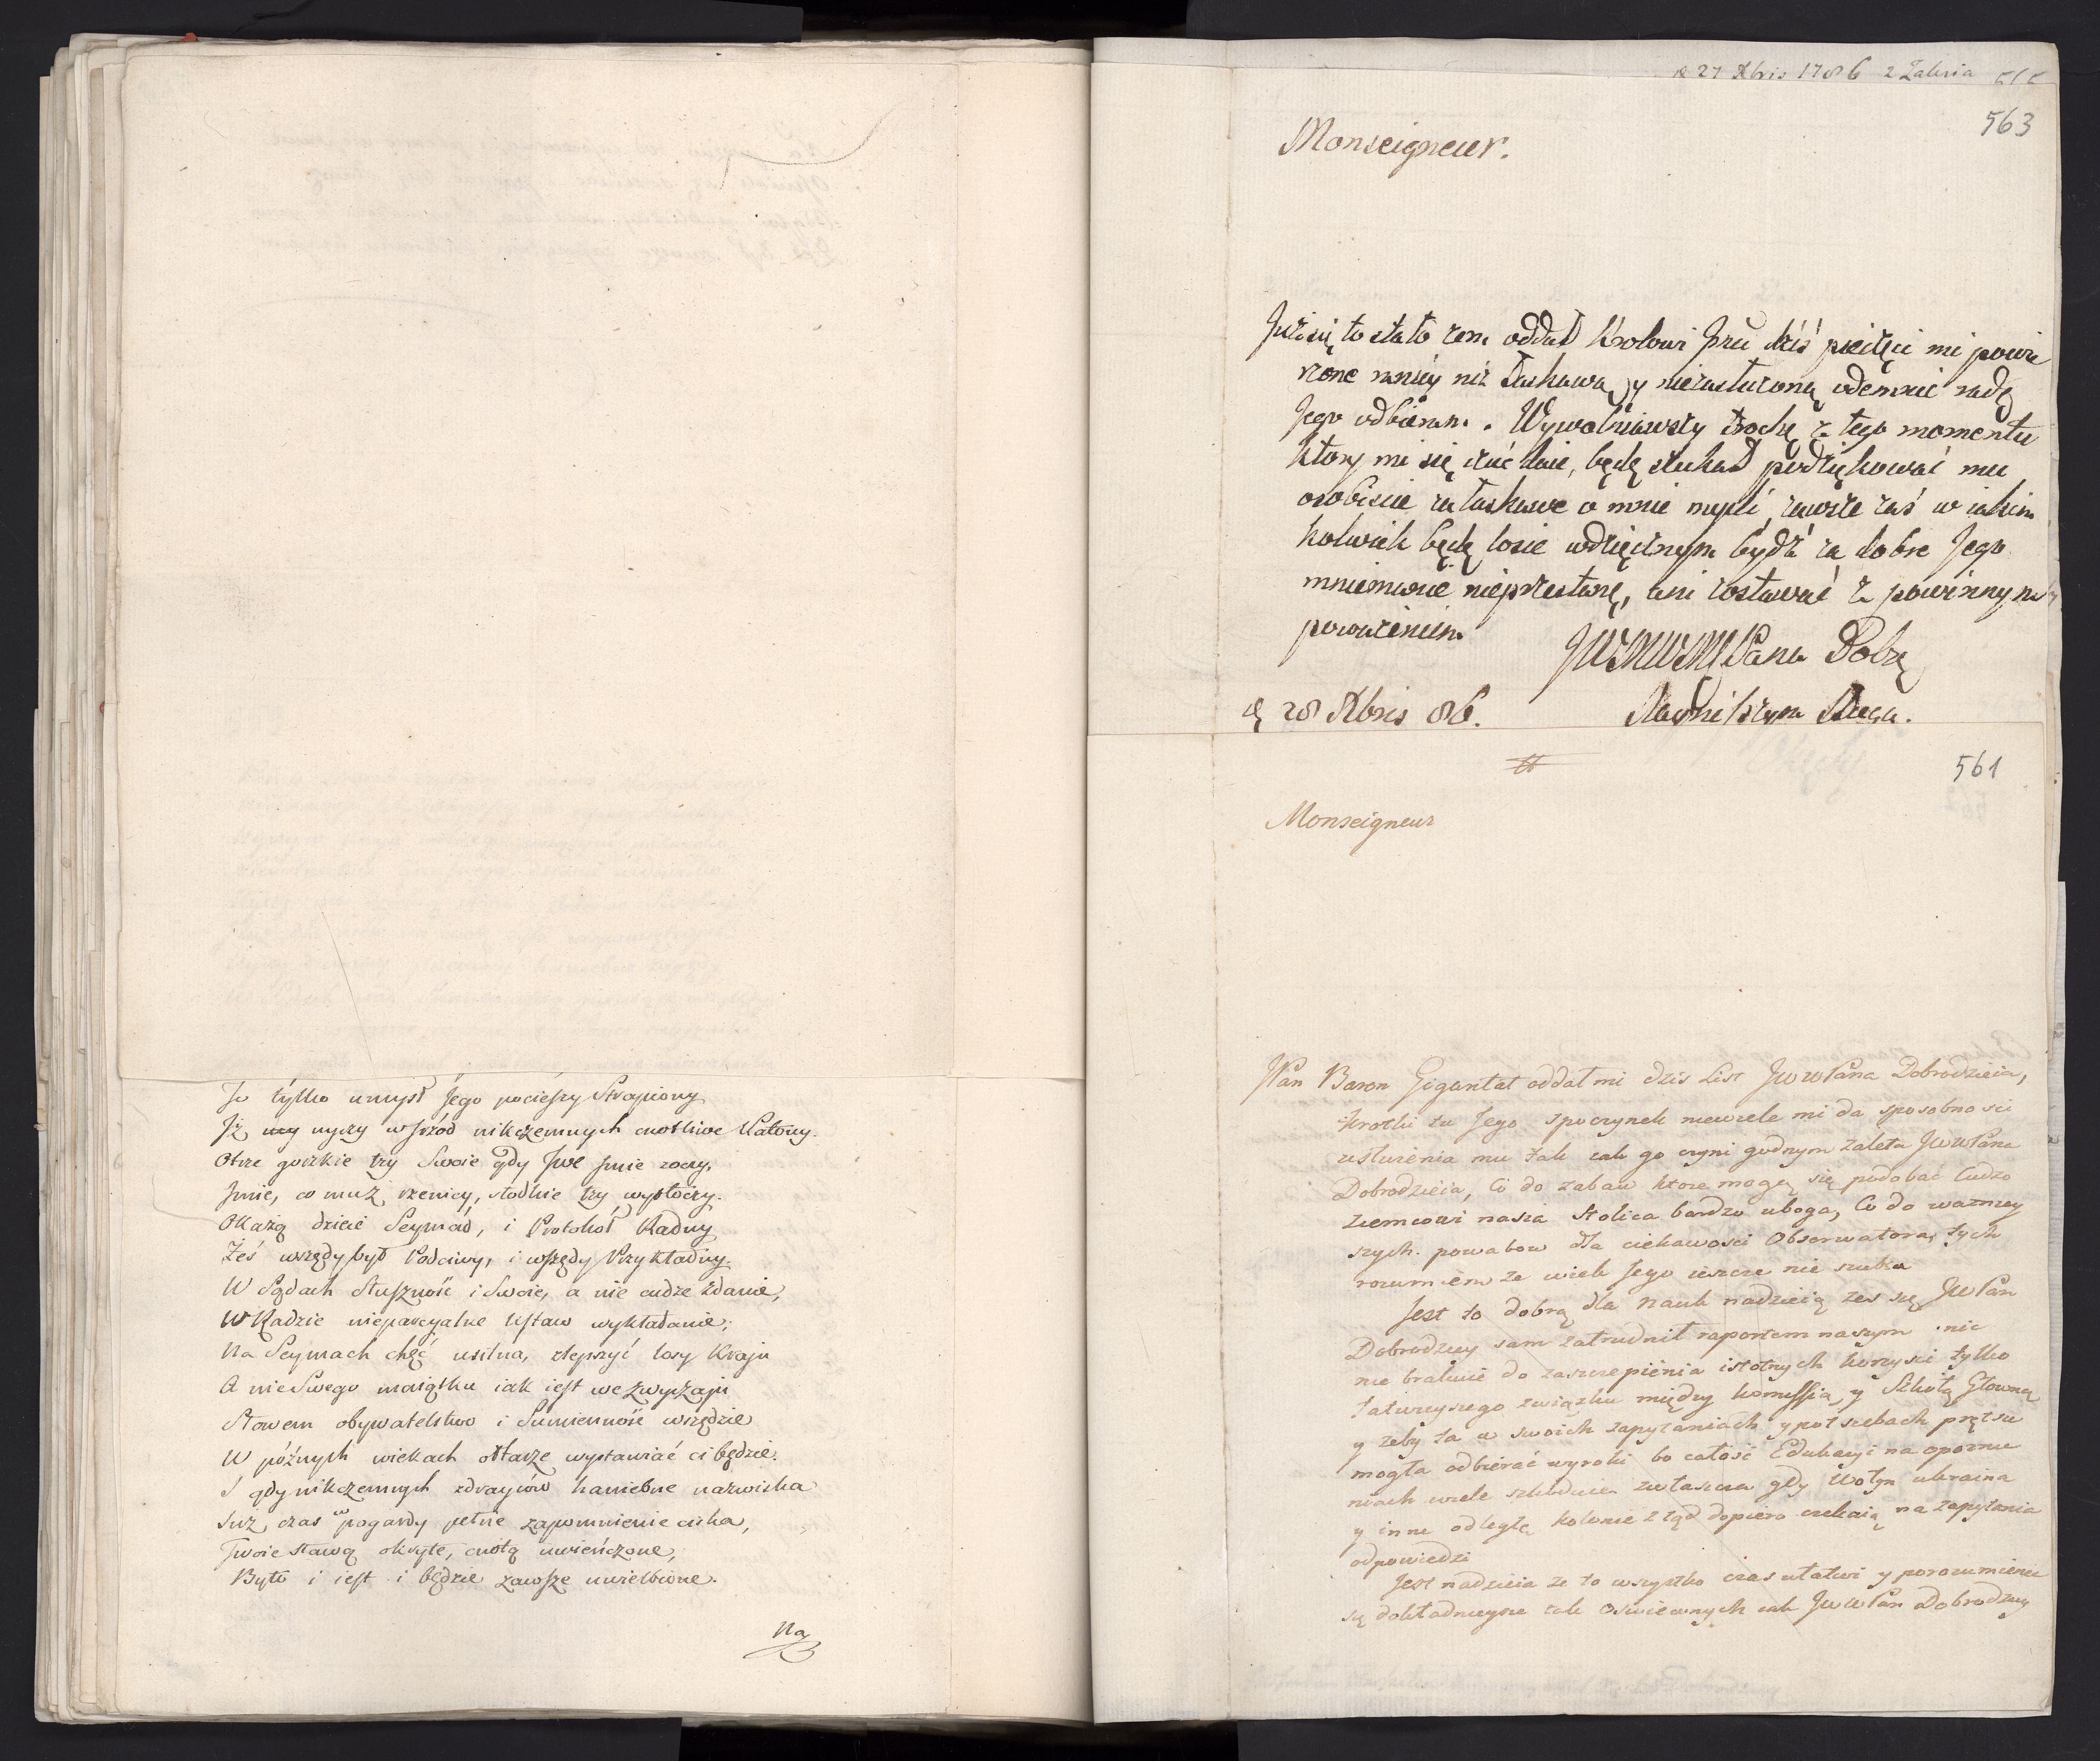 To tylko umysł Jego pocieszy Strapiony
Iż uczy wśrzód nikczemnych cnotliwe Katony.
Otrze gorzkie łzy Swoie gdy Twe Jmie zoczy,
Jmie, co mu z rzenicy, słodkie łzy wytłoczy.
Okażą dzieie Seymów, i Protokół Radny
Żeś wszędy był Poczciwy, i wszędy Przykładny.
W Sądach Słuszność i Swoie, a nie cudze Zdanie,
W Radzie nieparcyalne Ustaw wykładanie;
Na Seymach chęć usilna, zlepszyć losy Kraju
A nie Swego maiątku iak iest we zwyczaju
Słowem obywatelstwo i Sumienność wszędzie
W późnych wiekach ołtarze wystawiać ci będzie.
I gdy nikczemnych zdraycow haniebne nazwiska
Już czas w pogardy pełne zapomnienie ciska,
Twoie sławą okryte, cnotą uwieńczone,
Było i iest i będzie zawsze uwielbione.
Na
27 Xbris 1786 2
563
Monseigneur.
Już się to stało żem oddał Krolowi Jmci dziś pieczęci mi powie
rzone mniey niż łaskawą y niezasłużoną odemnie radę
Jego odbieram. Wywolniawszy trochę z tego momentu
ktory mi się czuć daie, będę szukał podziękować mu
osobiscie za łaskawe o mnie mysli, zawsze zaś w iakim
kolwiek będę losie wdzięcznym bydź za dobre Jego
mniemanie nieprzestanę, ani zostawać z powinnym
poważeniem
JWMWM Pana Dobr
d 28 Xbris 86.
Nayniższym Sługą.
561
Monseigneur
JPan Baron Gigantat oddał mi dzis List JWWPana Dobrodzieia,
Krotki tu Jego spoczynek niewiele mi da sposobnosci
usłużenia mu tak iak go czyni godnym zaleta JWWPana
Dobrodzieia, Co do zabaw ktore mogą się podobać Cudzo
ziemcowi nasza Stolica bardzo uboga, Co do wazniey
szych powabow dla ciekawosci Obserwatora, tych
rozumiem ze wiek Jego ieszcze nie szuka
Jest to dobrą dla Nauk nadzieią zes się JWPan
Dobrodziey sam zatrudnił raportem naszym nic
nie brakuie do zaszczepienia istotnych korzysci tylko
łatwieyszego związku między komissią y Szkołą Głowną
y zeby ta w swoich zapytaniach y potrzebach prętsze
mogła odbierać wyroki bo całość Edukacyi na opoznie
niach wiele szkoduie zwłaszcza gdy Wołyn ukraina
y inne odległe kolonie z tąd dopiero czekaią na zapytania
odpowiedzi
Jest nadzieia ze to wszystko czas ułatwi y porozumienie
się dokładnieysze tak Oswieconych iak JWWPan Dobrodziey